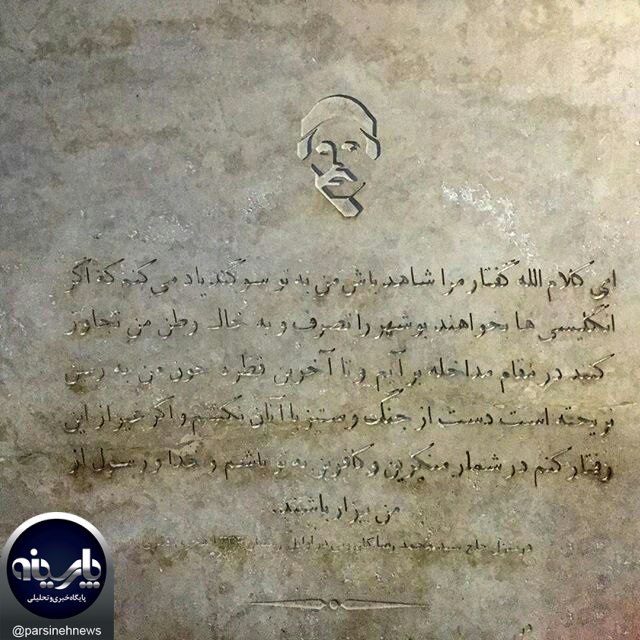 ای کلام الله گفتار مرا شاهد باش من به تو سوگند یاد می کنم که اگر
انگلیسی ها بخواهند بوشهر را تصرف و به خاک وطن من تجاوز
کنند در مقام مدافعه برآیم و تا آخرین قطره خون من به زمین
نریخته است دست از جنگ و ستیز با آنان نکشم و اگر غیر از این
رفتار کنم در شمار منکرین و کافرین به تو باشم و خدا و رسول از
من بیزار باشند.
در منزل حاج سید محمد رضا کازرونی در اوایل
در
پارسینه
پایگاه خبری و تحلیلی
@parsinehnews